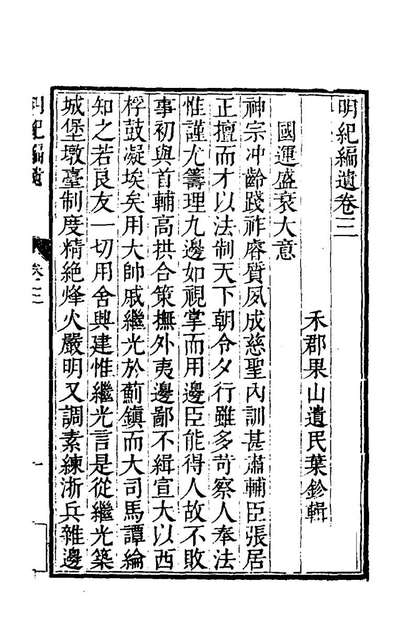 明紀編遺卷三
禾郡果山遺民葉鉁輯
國運盛衰大意
神宗冲齡踐祚睿質夙成慈聖內訓甚肅輔臣張居
正擅而才以法制天下朝令夕行雖多苛察人奉法
惟謹尤籌理九邊如視掌而用邊臣能得人故不敗
事初與首輔高拱合策撫外夷邊鄙不緝宣大以西
桴鼓凝埃矣用大帥戚繼光於薊鎮而大司馬譚綸
知之若良友一切用舍興建惟繼光言是從繼光築
城堡墩臺制度精絶烽火嚴明又調素練浙兵雜邊
明紀編遺
卷三
一